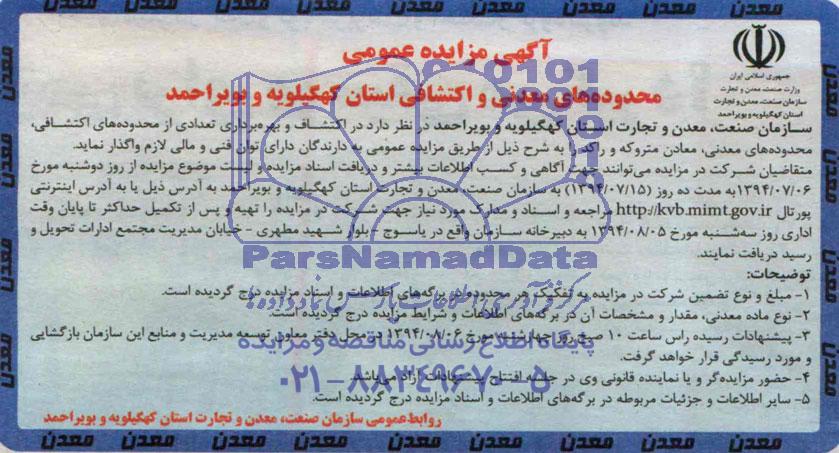 معدن معدن معدن معدن معدن معدن معدن معدن معدن
جمهوری اسلامی ایران
وزارت صنعت، معدن و تجارت
سازمان صنعت، معدن و تجارت
استان کهگیلویه و بویراحمد
آگهی مزایده عمومی
محدوده‌های معدنی و اکتشافی استان کهگیلویه و بویراحمد
سازمان صنعت، معدن و تجارت استان کهگیلویه و بویراحمد در نظر دارد در اکتشاف و بهره‌برداری تعدادی از محدوده‌های اکتشافی،
محدوده‌های معدنی، معادن متروکه و راکد را به شرح ذیل از طریق مزایده عمومی به دارندگان دارای توان فنی و مالی لازم واگذار نماید.
متقاضیان شرکت در مزایده می‌توانند جهت آگاهی و کسب اطلاعات بیشتر و دریافت اسناد مزایده و لیست موضوع مزایده از روز دوشنبه مورخ
۱۳۹۴/۰۷/۰۶ به مدت ده روز (۱۳۹۴/۰۷/۱۵) به سازمان صنعت، معدن و تجارت استان کهگیلویه و بویراحمد به آدرس ذیل یا به آدرس اینترنتی
پورتال http://kvb.mimt.gov.ir مراجعه و اسناد و مدارک مورد نیاز جهت شرکت در مزایده را تهیه و پس از تکمیل حداکثر تا پایان وقت
اداری روز سه‌شنبه مورخ ۱۳۹۴/۰۸/۰۵ به دبیرخانه سازمان واقع در یاسوج - بلوار شهید مطهری - خیابان مدیریت مجتمع ادارات تحویل و
رسید دریافت نمایند.
توضیحات:
۱- مبلغ و نوع تضمین شرکت در مزایده به تفکیک هر محدوده در برگه‌های اطلاعات و اسناد مزایده درج گردیده است.
۲- نوع ماده معدنی، مقدار و مشخصات آن در برگه‌های اطلاعات و شرایط مزایده درج گردیده است.
۳- پیشنهادات رسیده راس ساعت ۱۰ صبح روز چهارشنبه مورخ ۱۳۹۴/۰۸/۰۶ در محل دفتر معاون توسعه مدیریت و منابع این سازمان بازگشایی
و مورد رسیدگی قرار خواهد گرفت.
۴- حضور مزایده‌گر و یا نماینده قانونی وی در جلسه افتتاح پیشنهادات آزاد می‌باشد.
۵- سایر اطلاعات و جزئیات مربوطه در برگه‌های اطلاعات و اسناد مزایده درج گردیده است.
روابط عمومی سازمان صنعت، معدن و تجارت استان کهگیلویه و بویراحمد
ParsNamadData
پایگاه اطلاع رسانی مناقصه و مزایده
۰۲۱-۸۸۳۴۹۶۷۰-۵
معدن معدن معدن معدن معدن معدن معدن معدن معدن